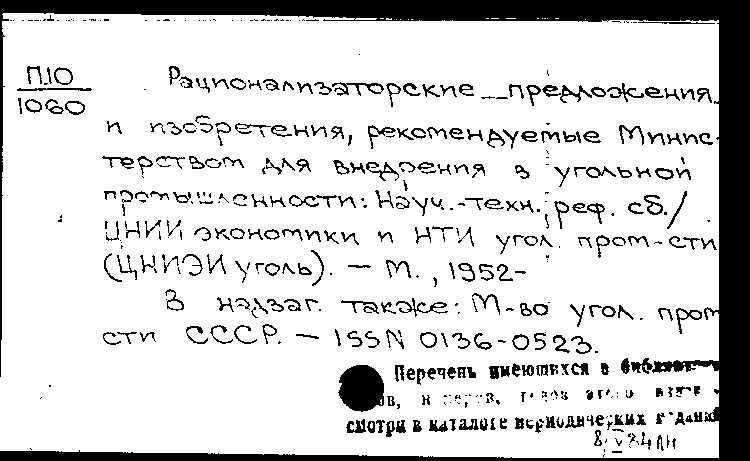 П.10
1060
Рационализаторские предложения
и изобретения, рекомендуемые Минис-
терством для внедрения в угольной
промышленности: Науч.-техн. реф. сб./
ЦНИИ экономики и НТИ угол. пром-сти
(ЦНИЭИуголь). – М., 1952-
В надзаг. также: М-во угол. пром
сти СССР. – ISSN 0136-0523.
Перечень имеющихся в библиот
ов, номеров, томов этого
смотри в каталоге периодических издани